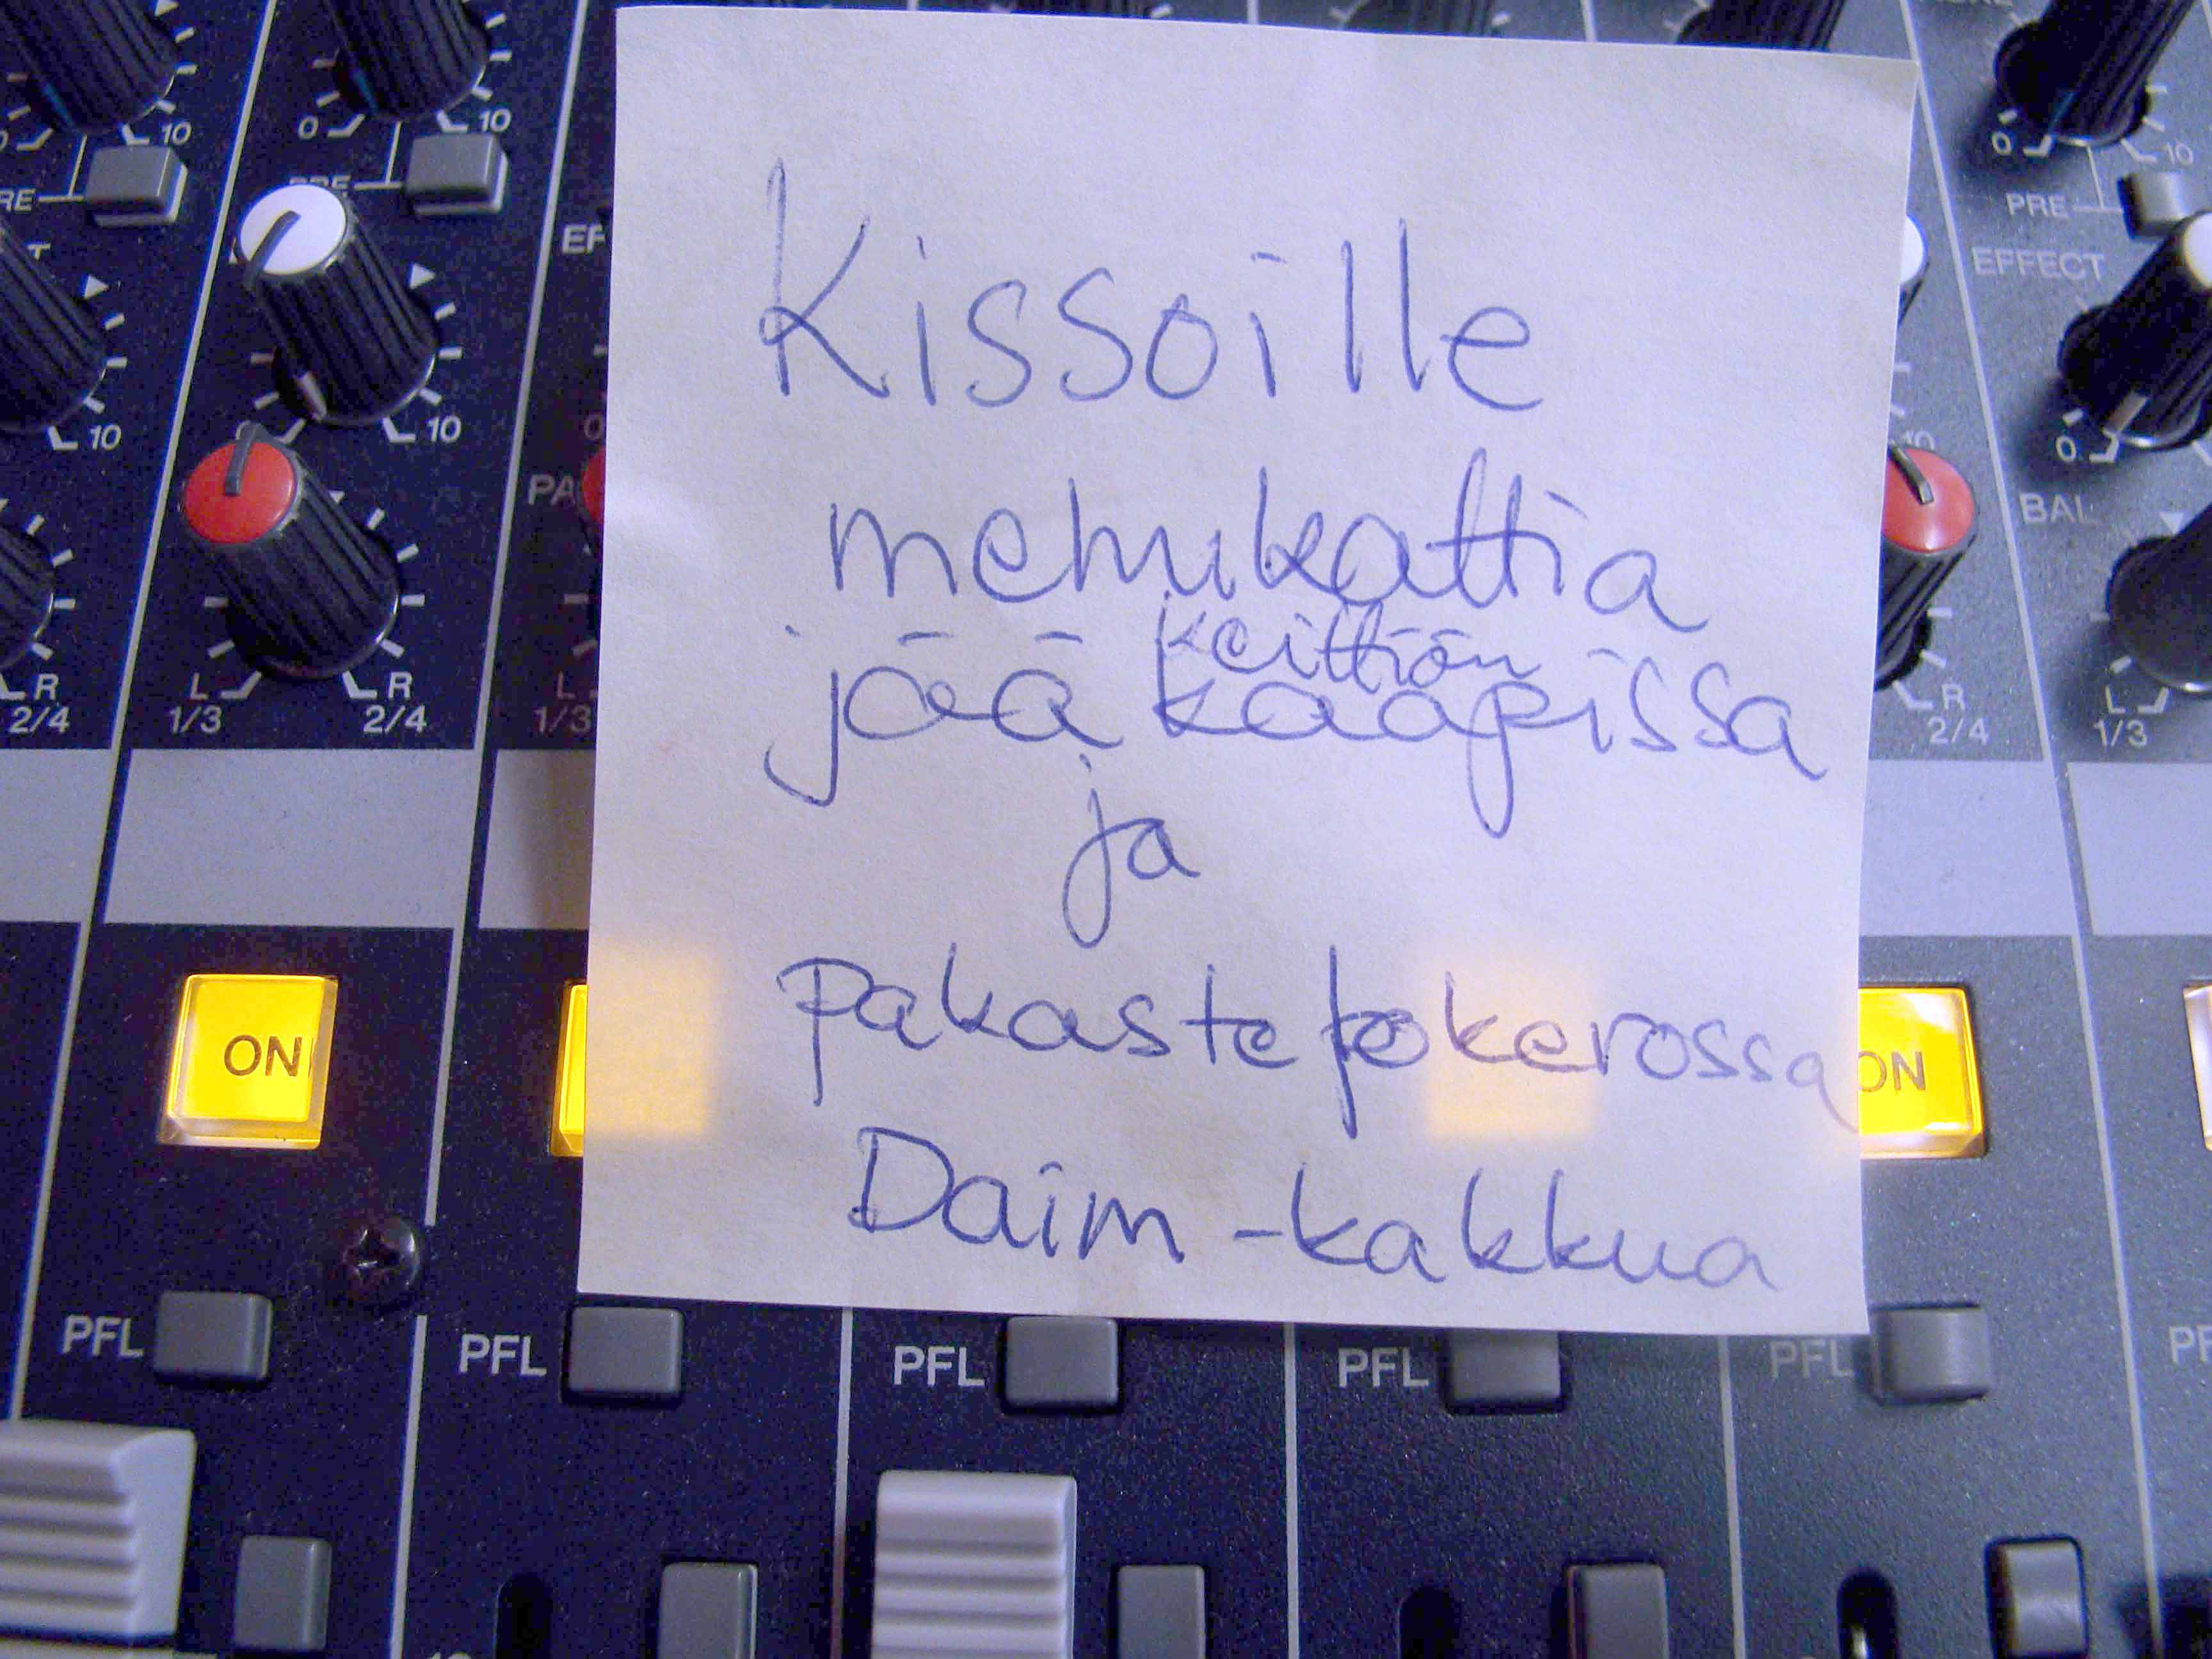 0 10 0 10 0 10
PRE PRE PRE
EFFECT
10 10 10 0
BAL
L R L R L
2/4 1/3 2/4 1/3 2/4 1/3
Kissoille
mehukattia
keittiön
jääkaapissa
ja
pakastelokerossa
Daim -kakkua
ON ON
PFL PFL PFL PFL PFL